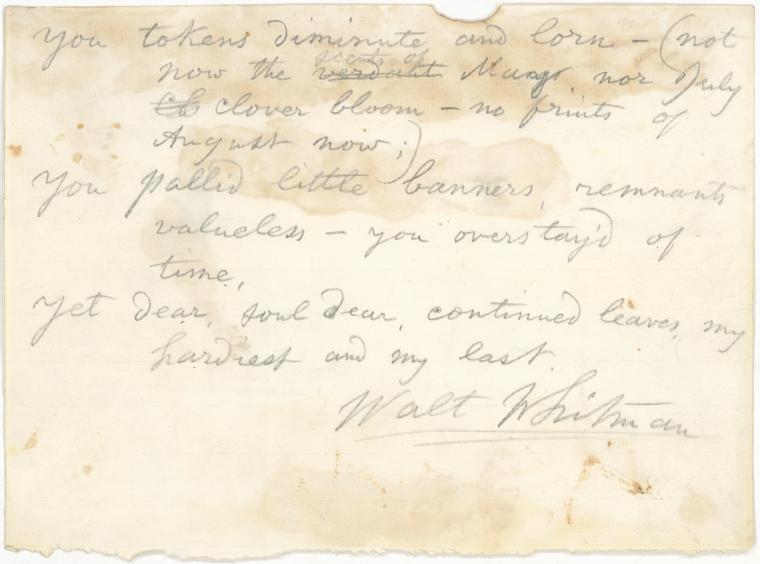 You tokens diminute and lorn – (not
scents of
now the verdant May nor July
clover bloom – no fruits of
August now;)
You pallid little banners, remnants
valueless – you overstay'd of
time,
Yet dear, soul dear, continued leaves, my
hardiest and my last.
Walt Whitman